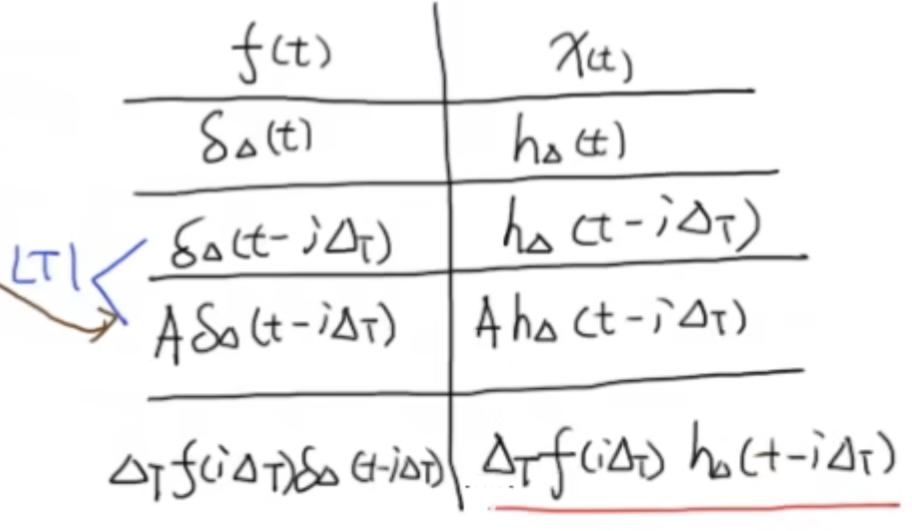 f(t) x(t)
δ_Δ(t) h_Δ(t)
δ_Δ(t-iΔ_T) h_Δ(t-iΔ_T)
LTI
Aδ_Δ(t-iΔ_T) Ah_Δ(t-iΔ_T)
Δ_T f(iΔ_T)δ_Δ(t-iΔ_T) Δ_T f(iΔ_T) h_Δ(t-iΔ_T)